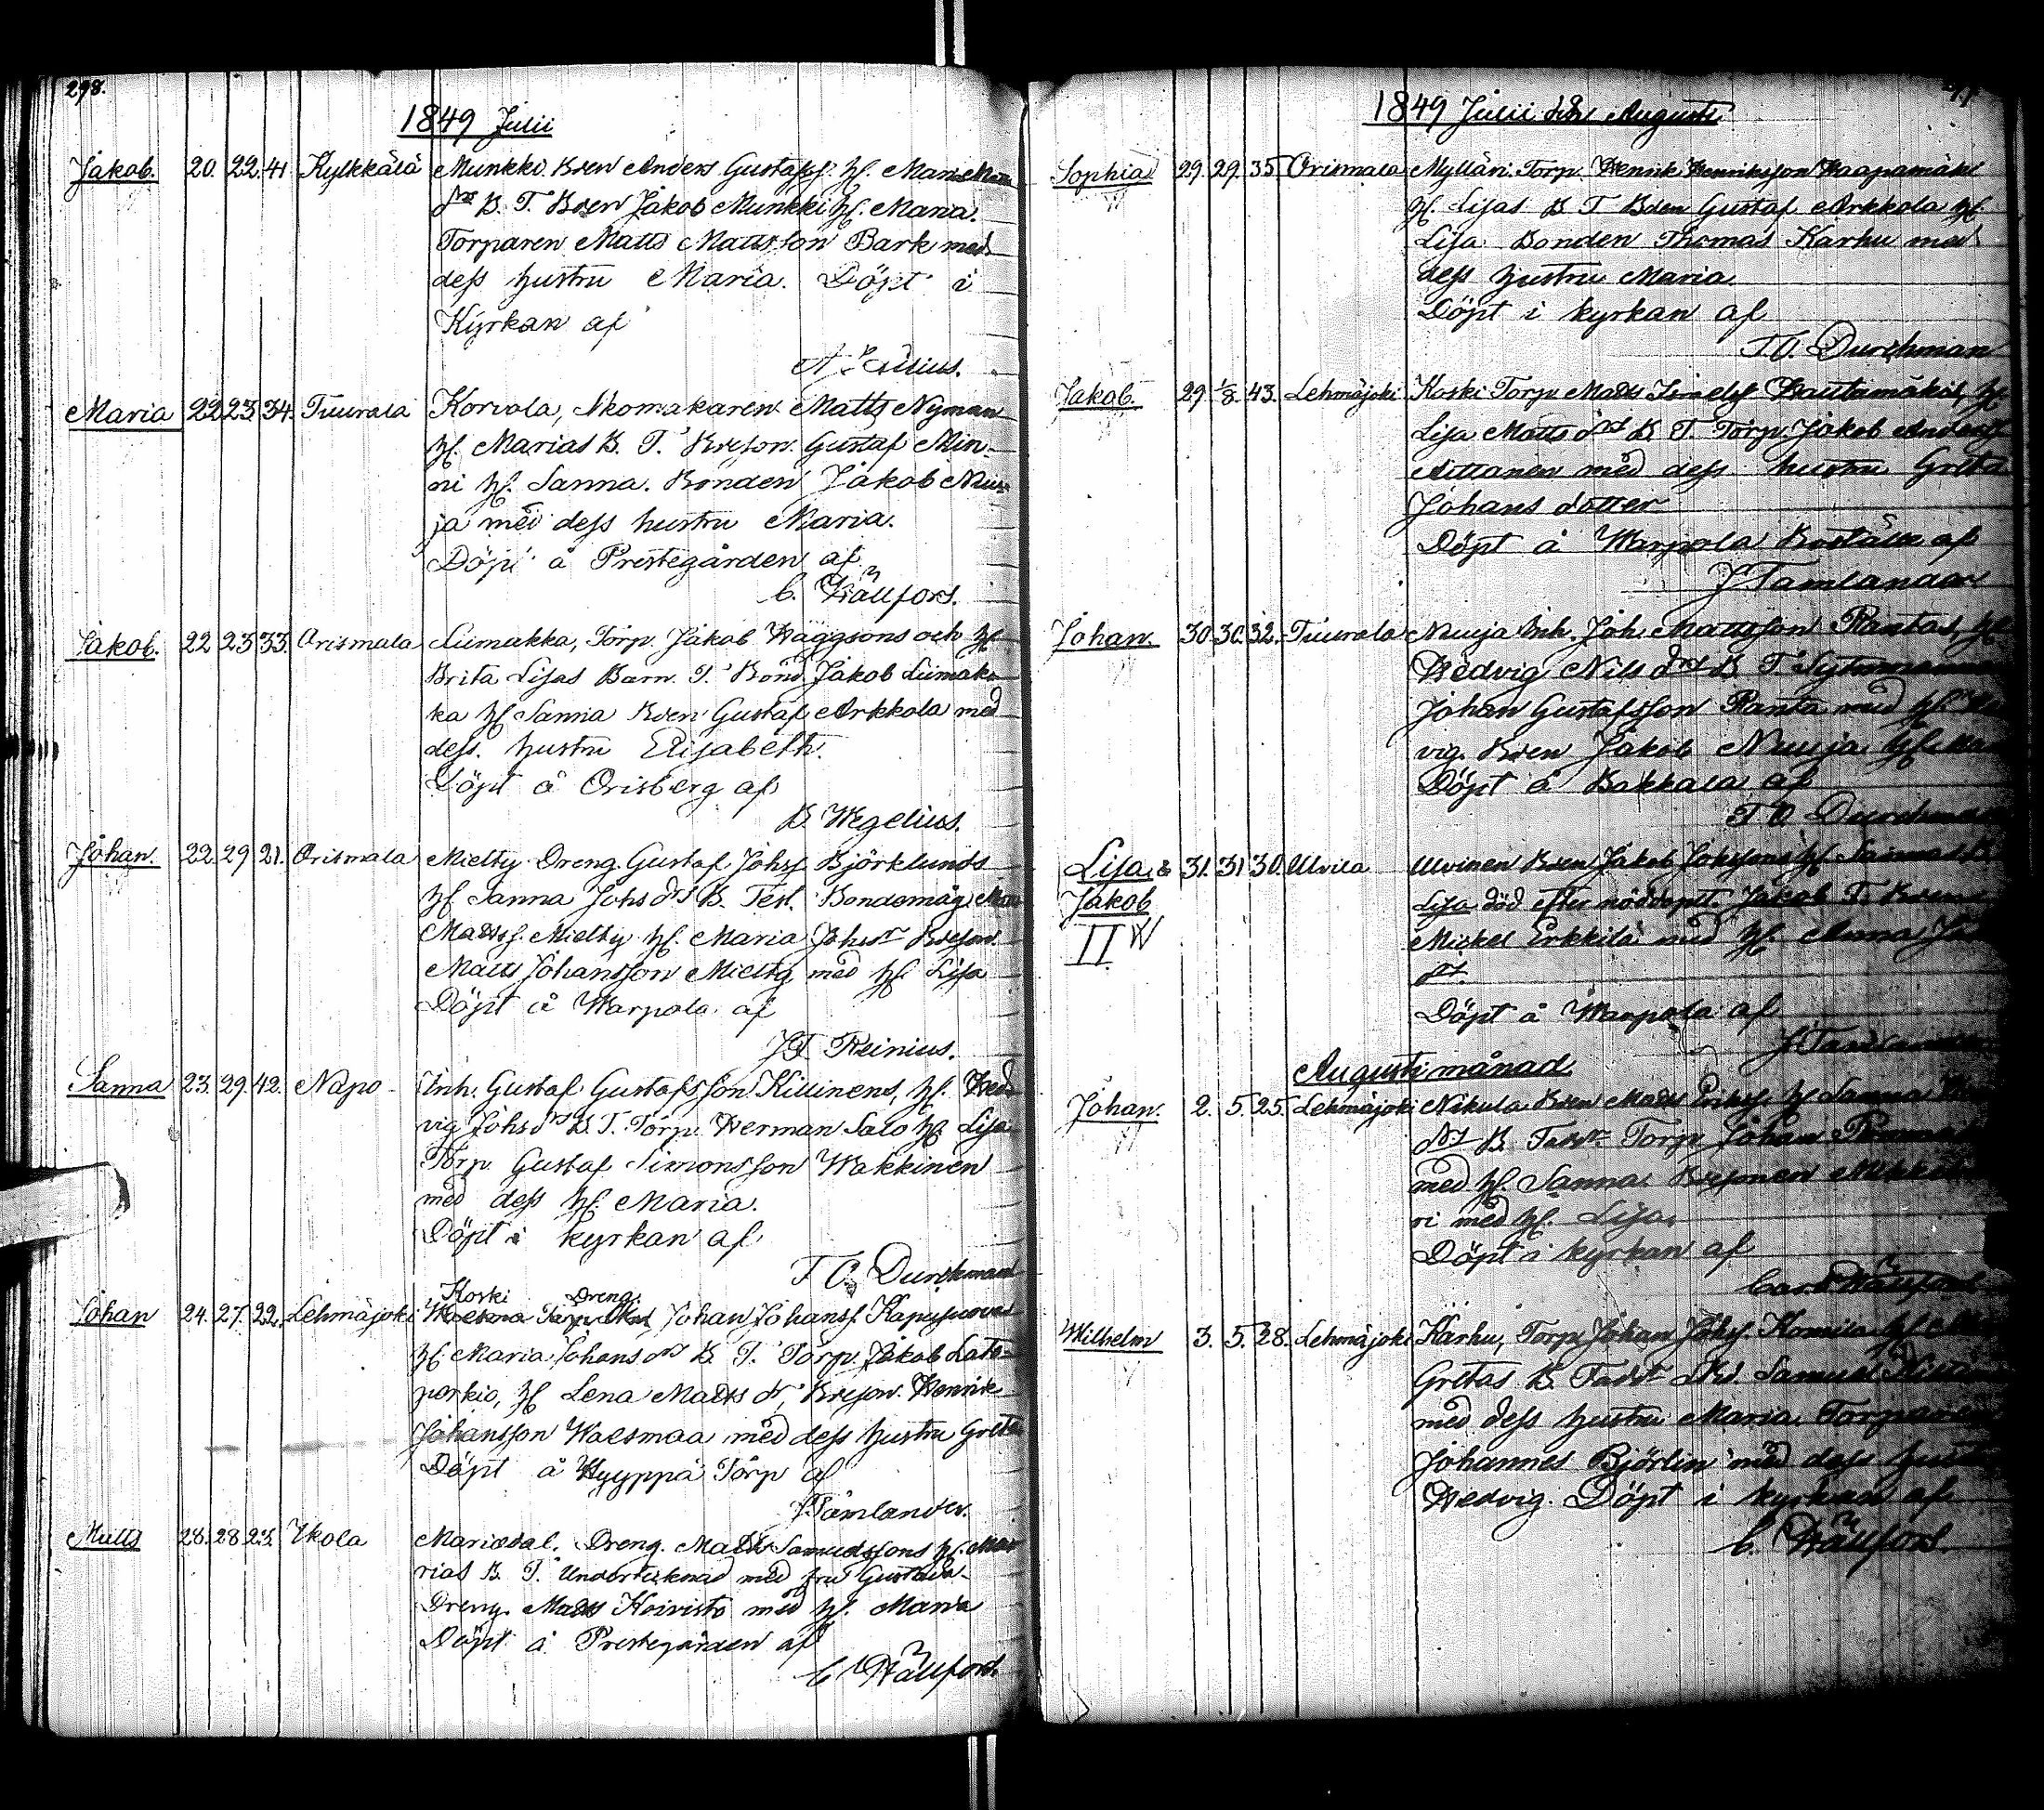 298.
1849 Julii
Jakob. 20. 22. 41 Kylkkälä Munkki Bden Anders Gustafss. hf. Maria
drs B. T. Bden Jakob Munkki hf. Maria.
Torparen Matts Mattsson Bark med
dess hustru Maria. Döpt i
Kyrkan af
Maria 22 23 34. Tuurala Korvola, Skomakaren Matts Nyman
hf. Marias B. T. Bdeson. Gustaf Min-
ni hf. Sanna. Bonden Jakob Nuu-
ja med dess hustru Maria.
Döpt å Prestegården af
C. Hällfors.
Jakob. 22 23 33. Orismala Liimakka, Torp. Jakob Häggsons och hf
Brita Lisas Barn. T. Bond. Jakob Liimak-
ka hf Sanna Bden Gustaf Arkkola med
dess. hustru Elisabeth.
Döpt å Orisberg af
B. Wegelius.
Johan. 22. 29 21. Orismala Mielty Dreng Gustaf Johss Björklunds
hf Sanna Johs drs B. Test. Bondemåg
Mattss. Mielty hf. Maria Johsdr Bdeson.
Matts Johansson Mielty med hf Lisa
Döpt å Warpala af
J T Reinius.
Sanna 23. 29. 42. Napo Inh. Gustaf Gustafsson Killinens, hf. Hed-
vig Johs drs B. T. Torp. Herman Salo hf Lisa
Torp. Gustaf Simonsson Hakkinen
med dess hf. Maria.
Döpt i kyrkan af
T O. Durchman
Koski Dreng.
Johan 24. 27. 22. Lehmäjoki Johan Johanss.
hf Maria Johans drs B. T. Torp Jakob Lato-
porkio, hf Lena Matts dr, Bdeson. Henrik
Johansson Waesmaa med dess hustru Greta
Döpt å Hyyppä Torp af
J Tamlander.
Matts 28. 28. 23. Ikola Mariedal. Dreng. Matts Samuelssons hf. Ma-
rias B. T. Undertecknad med fru Gustava
Dreng. Matts Koivisto med hf. Maria
Döpt å Prestegården af
C Hällfors.
1849 Julii och Augusti
Sophia 29. 29. 35. Orismala Mylläri Torp. Henrik Henriksson Haapamäki
hf. Lisas B T Bden Gustaf Arkkola hf
Lisa Bonden Thomas Karhu med
dess hustru Maria
Döpt i kyrkan af
T O. Durchman
Jakob. 29. 1/8. 43. Lehmäjoki Koski Torp Matts Hautamäkis, hf
Lisa Matts drs B. T. Torp. Jakob Anderss
Aittanen med dess hustru Greta
Johans dotter
Döpt å Warpola Boställe af
J Tamlander
Johan. 30. 30. 32. Tuurala Nuuja Inh. Joh. Mattsson Rantas, hf
Hedvig Nils drs B. T.
Johan Gustafsson Ranta med hf.
vig. Bden Jakob Nuuja hf.
Döpt å Bakkala af
T O Durchman
Lisa & 31. 31 30. Ulvila Ulvinen Bden Jakob Johssons hf Sannas
Jakob Lisa död efter nöddopet. Jakob T. Bden
II Mickel Erkkilä med hf. Anna
drs
Döpt å Warpola af
J Tamlander
Augusti månad
Johan. 2. 5. 25. Lehmäjoki Nikula Bden Matts Erikss. hf Sanna
drs B. Torp Johan
med hf. Sanna Bdesonen
ri med hf. Lisa.
Döpt i kyrkan af
Carl Hällfors
Wilhelm 3. 5. 28. Lehmäjoki Karhu, Torp Johan Johss. hf
Gretas B. Samuel
med dess hustru Maria Torparen
Johannes Björlin med dess
Hedvig. Döpt i kyrkan af
C. Hällfors.